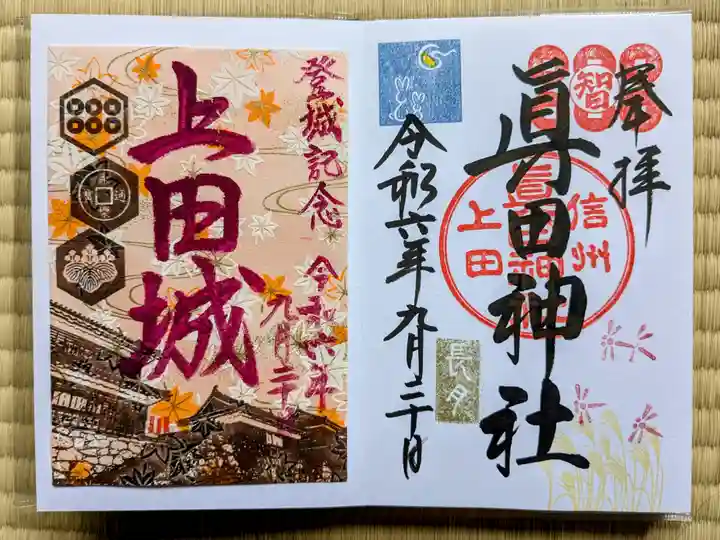 奉拝
眞田神社
智
信州
上田
令和六年九月二十日
長月
登城記念
上田城
令和六年
九月二十日